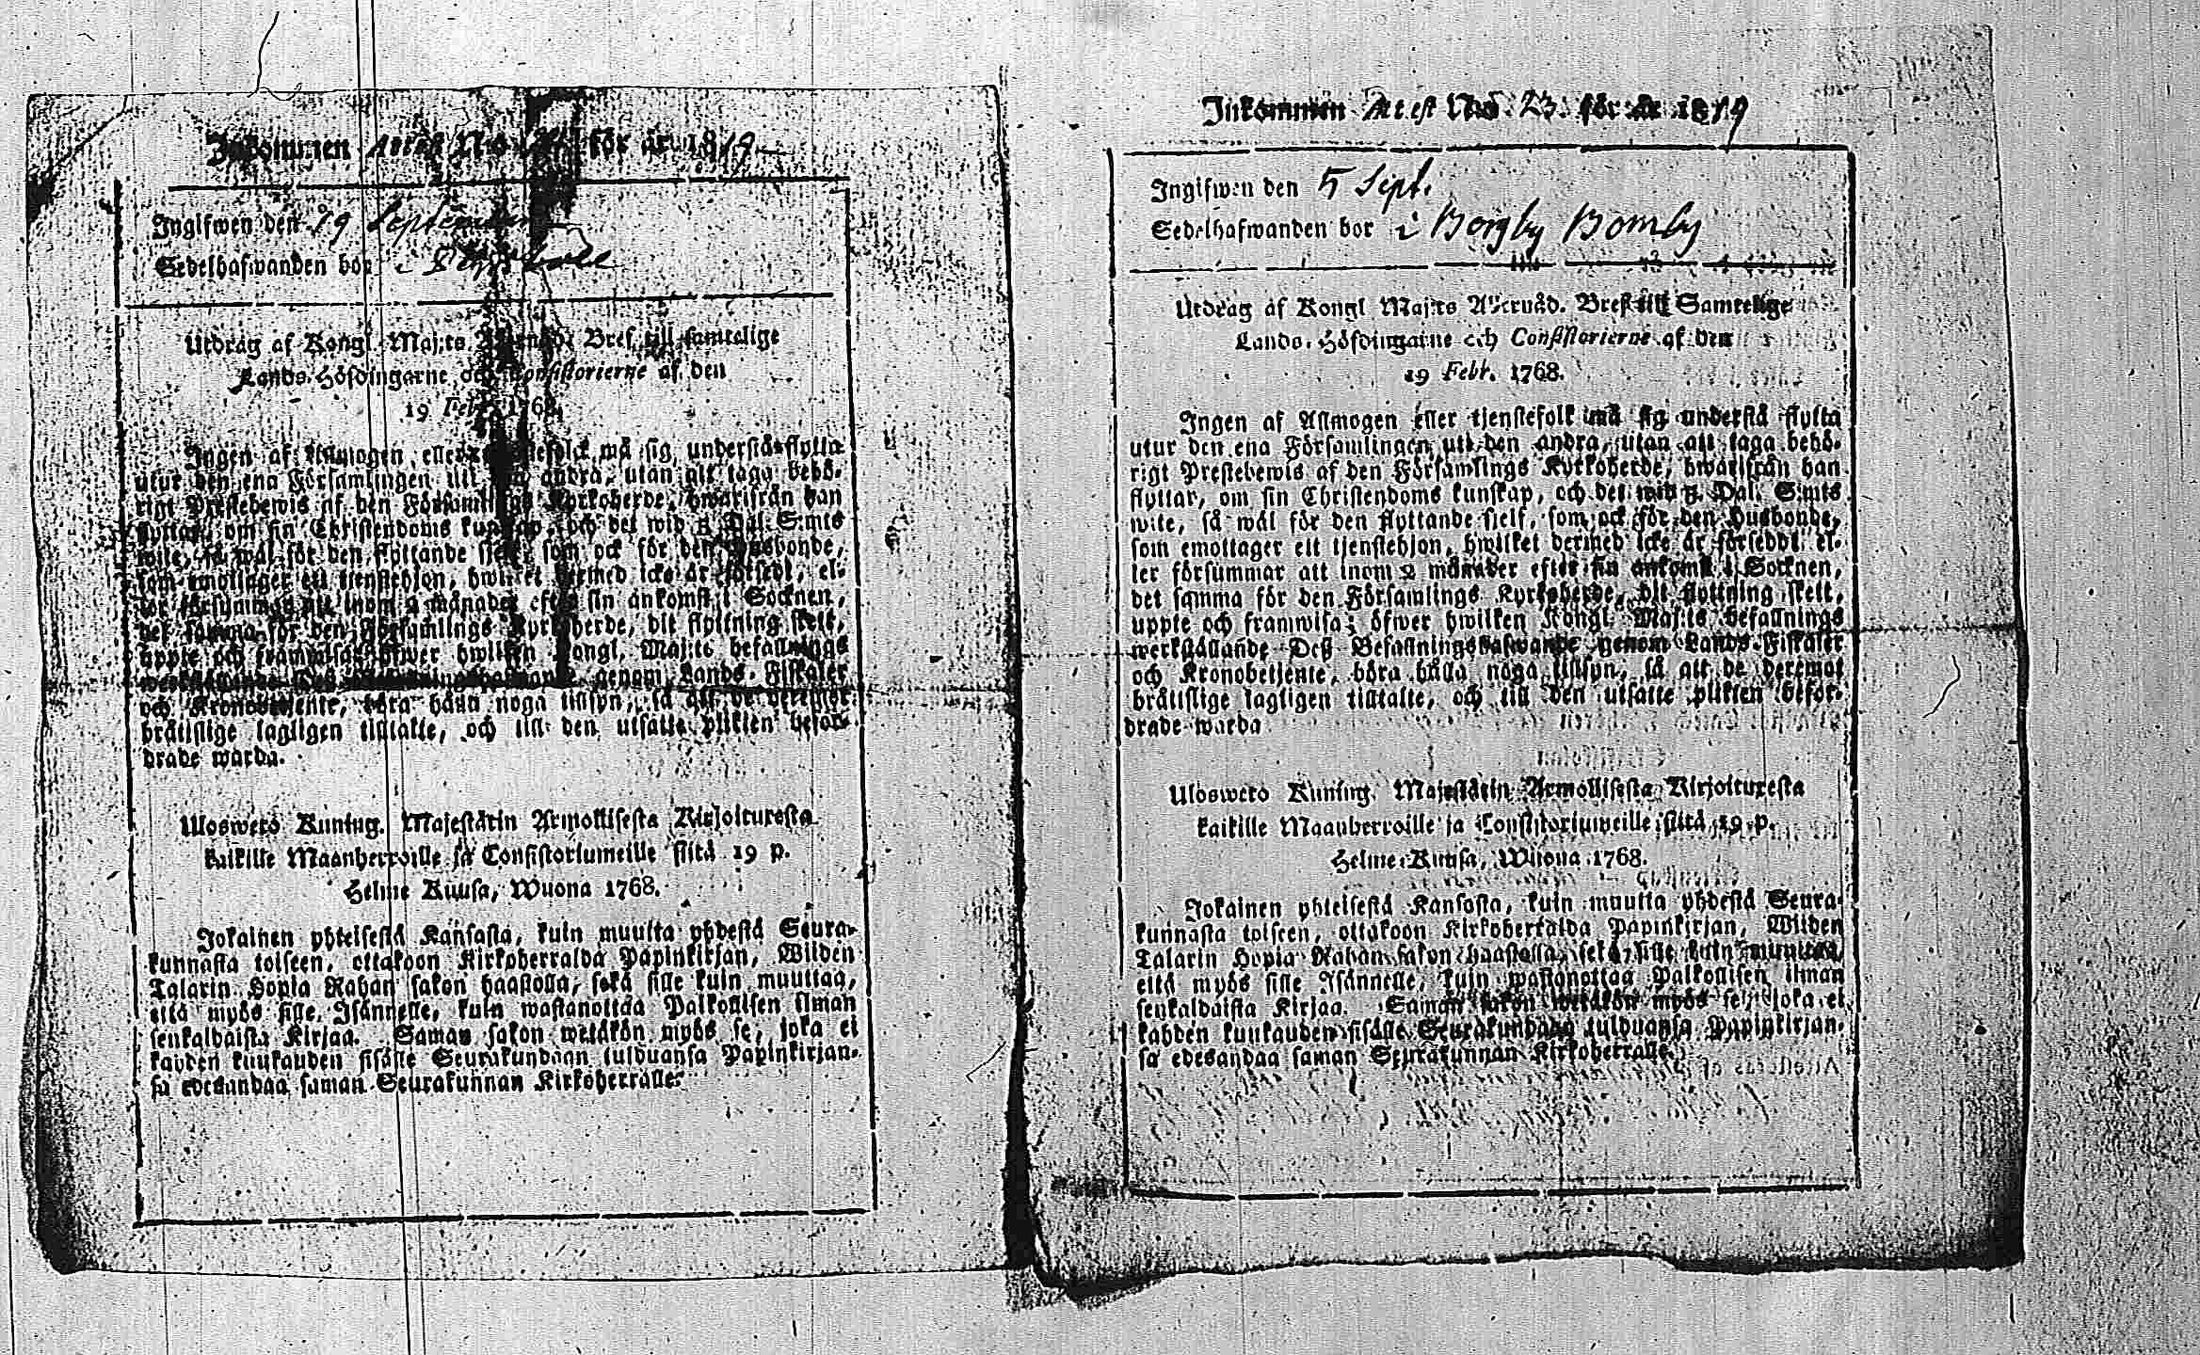 Inkommen attest No för år 1819
Ingifwen den 19 September
Sedelhafwanden bor i
Utdrag af Kongl. Maj:ts Bref till samtelige
Lands-Höfdingarne och Consistorierne af den
19 Febr. 1768.
Ingen af Allmogen eller må sig understå flytta
utur den ena Församlingen till den andra, utan att taga behö-
rigt Prestebewis af den Församlings Kyrkoherde, hwarifrån han
flyttar, om sin Christendoms kunskap, och det wid 5 Dal. S:mts
wite, så wäl för den flyttande sielf, som ock för den Husbonde,
som emottager ett tjenstehjon, hwilket dermed icke är försedt, el-
ler försummar att inom 2 månader efter sin ankomst i Socknen,
det samma för den Församlings Kyrkoherde, dit flyttning skett,
uppte och framwisa; öfwer hwilken Kongl. Maj:ts befallnings
werkställande Deß genom Lands-Fiskaler
och Kronobetjente, böra hålla noga tillsyn, så att de deremot
bråttslige lagligen tilltalte, och till den utsatte plikten beför-
drade warda.
Uloswetö Kuning. Majestätin Armollisesta Kirjoituresta
kaikille Maanherroille ja Consistoriumeille siitä 19 p.
Helme Kuusa, Wuona 1768.
Jokainen yhteisestä Kansasta, kuin muutta yhdestä Seura-
kunnasta toiseen, ottakoon Kirkoherralda Papinkirjan, Wiiden
Talarin Hopia Rahan sakon haastolla, sekä sille kuin muuttaa,
että myös sille Isännelle, kuin wastanottaa Palkollisen ilman
senkaldaista Kirjaa. Saman sakon wetäkön myös se, joka ei
kahden kuukauden sisälle Seurakundaan tulduansa Papinkirjan-
sa edesandaa saman Seurakunnan Kirkoherralle.
Inkommen Attest No. 23. för år 1819
Ingifwen den 5 Sept.
Sedelhafwanden bor i Borgby Bomby
Utdrag af Kongl Maj:ts Allernåd. Bref till Samtelige
Lands-Höfdingarne och Consistorierne af den
19 Febr. 1768.
Ingen af Allmogen eller tjenstefolk må sig understå flytta
utur den ena Församlingen till den andra, utan att taga behö-
rigt Prestebewis af den Församlings Kyrkoherde, hwarifrån han
flyttar, om sin Christendoms kunskap, och det wid 5. Dal. S:mts
wite, så wäl för den flyttande sielf, som ock för den Husbonde,
som emottager ett tjenstehjon, hwilket dermed icke är försedt, el-
ler försummar att inom 2 månader efter sin ankomst i Socknen,
det samma för den Församlings Kyrkoherde, dit flyttning skett,
uppte och framwisa; öfwer hwilken Kongl. Maj:ts befallnings
werkställande Deß Befallningshafwande genom Lands-Fiskaler
och Kronobetjente, böra hålla noga tillsyn, så att de deremot
bråttslige lagligen tilltalte, och till den utsatte plikten beför-
drade warda
Uloswetö Kuning. Majestätin Armollisesta Kirjoituresta
kaikille Maanherroille ja Consistoriumeille siitä 19 p.
Helme-Kuusa, Wuona 1768.
Jokainen yhteisestä Kansasta, kuin muutta yhdestä Seura-
kunnasta toiseen, ottakoon Kirkoherralda Papinkirjan, Wiiden
Talarin Hopia Rahan sakon haastolla, sekä sille kuin muuttaa,
että myös sille Isännelle, kuin wastanottaa Palkollisen ilman
senkaldaista Kirjaa. Saman sakon wetäkön myös se, joka ei
kahden kuukauden sisälle Seurakundaan tulduansa Papinkirjan-
sa edesandaa saman Seurakunnan Kirkoherralle.